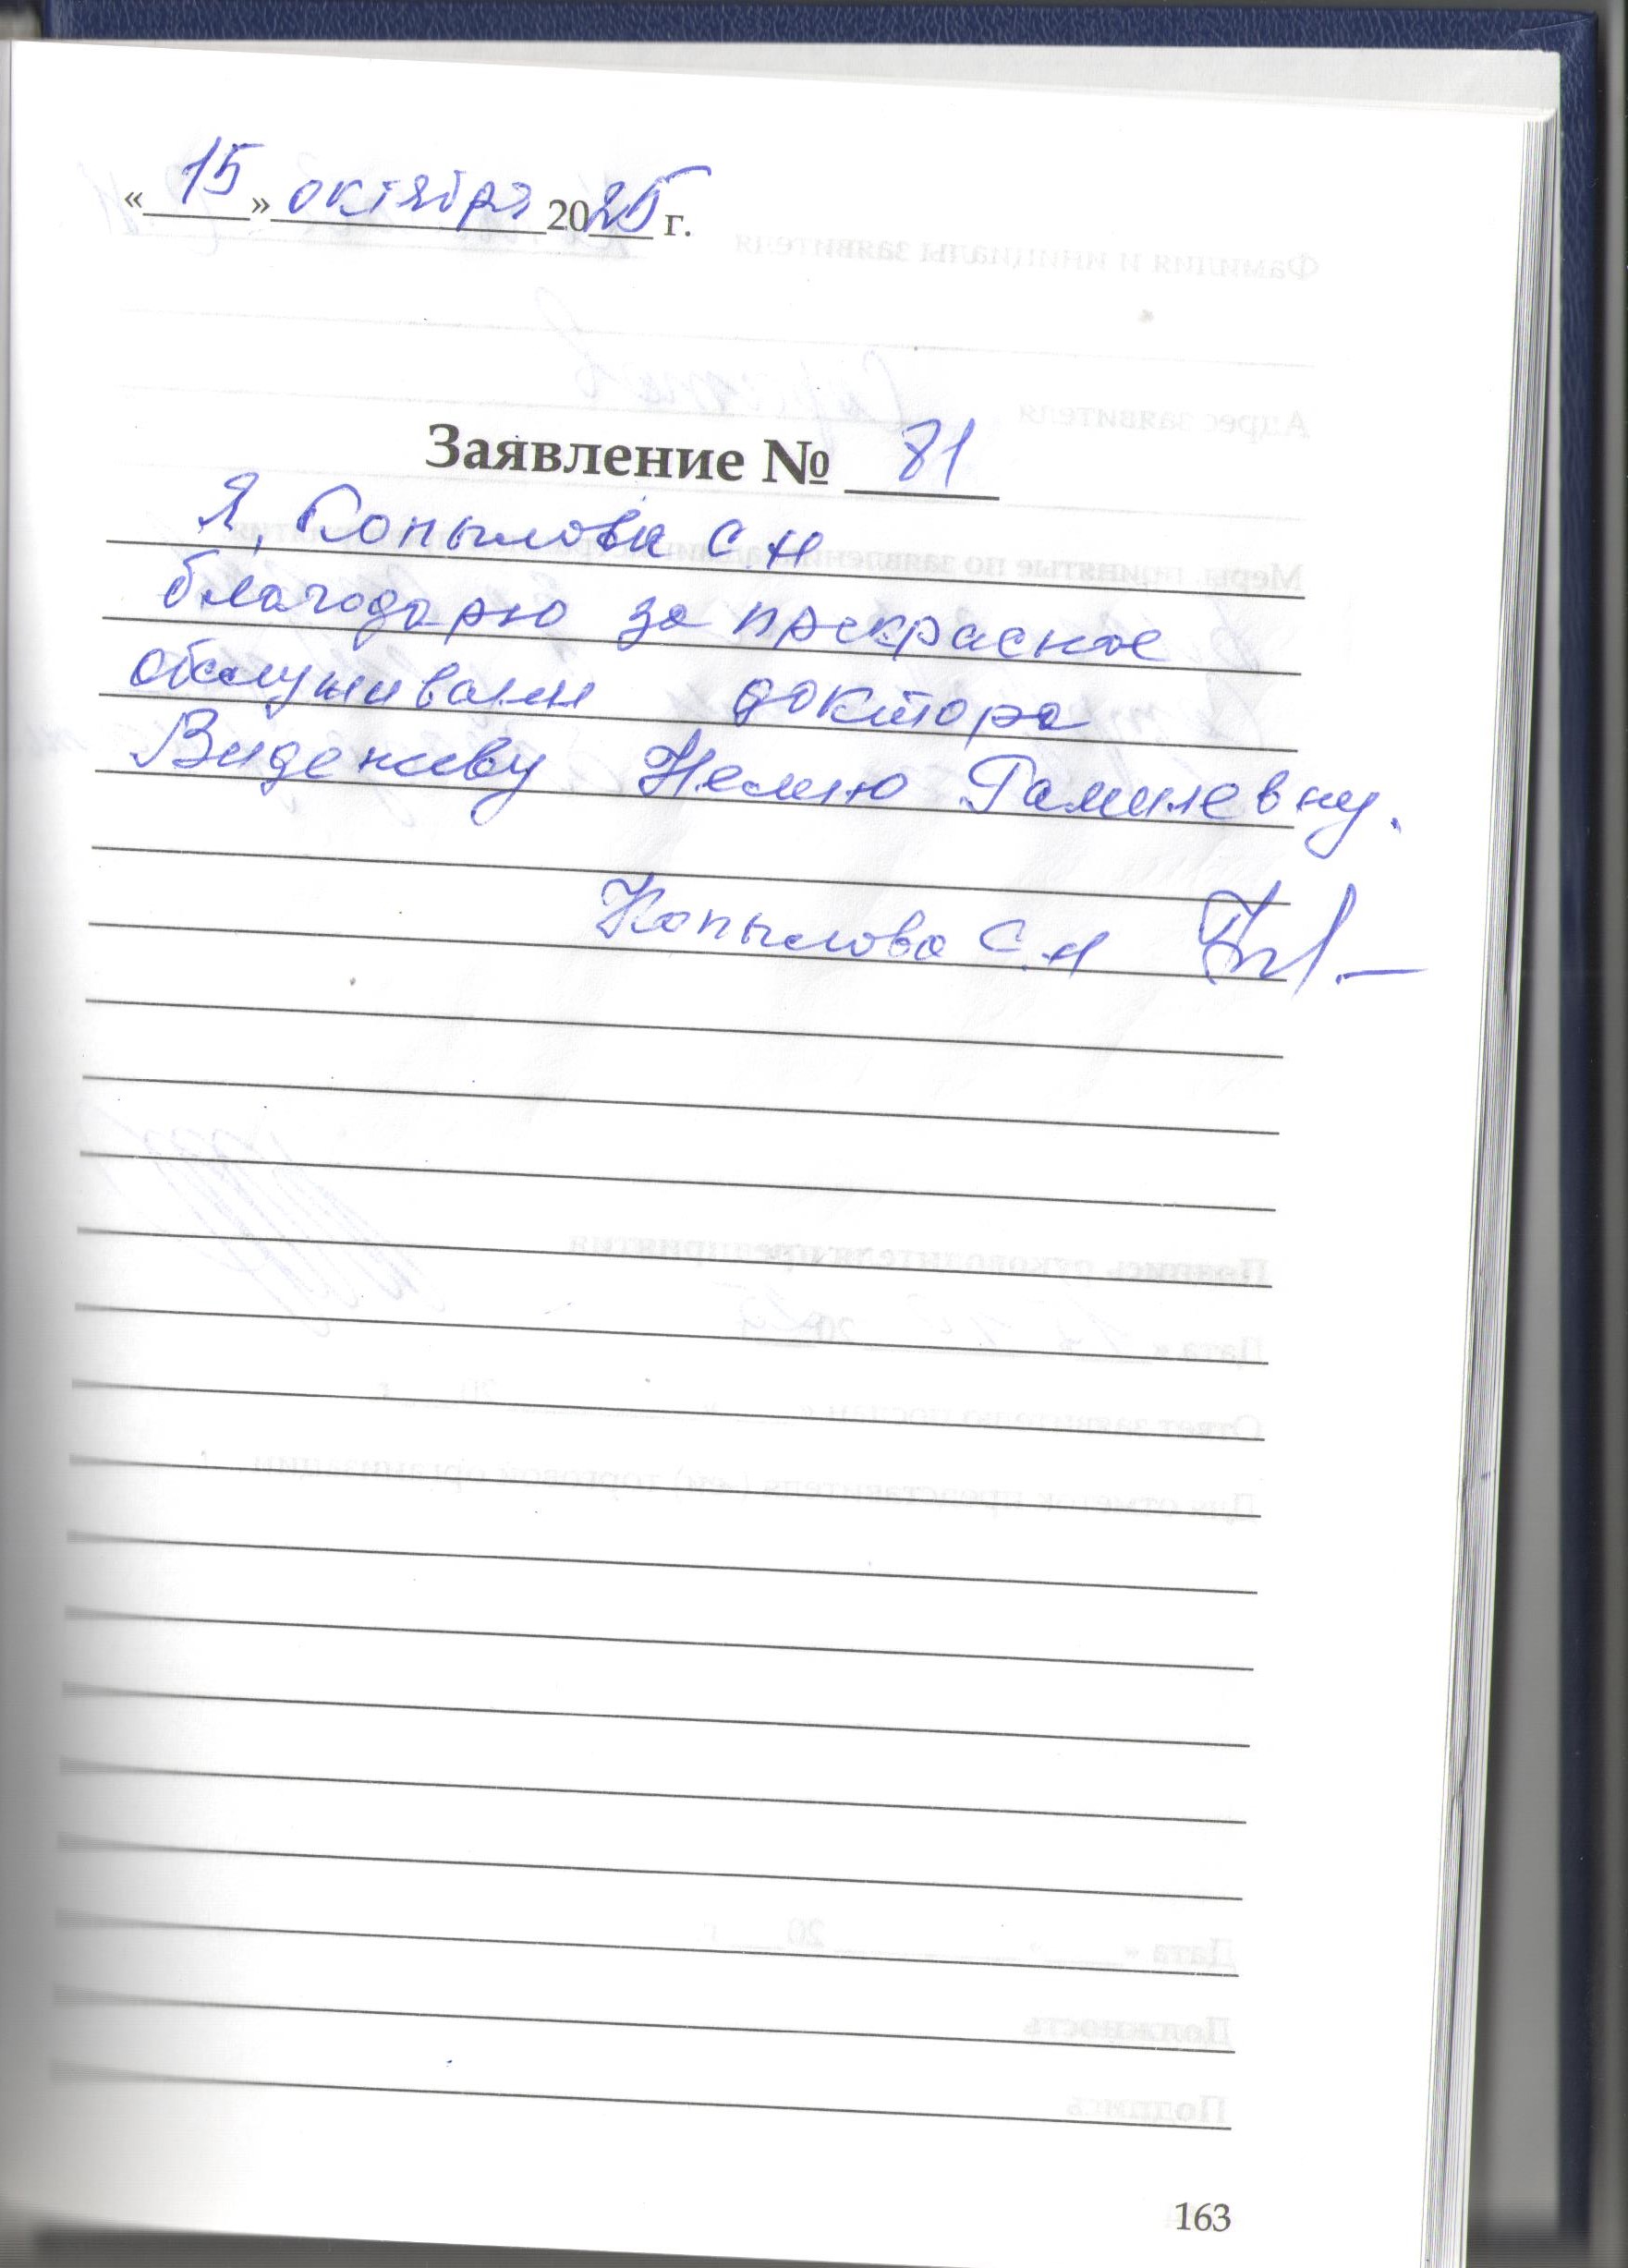 «15» октября 2025 г.
Заявление № 81
Я, Копылова С.Н
благодарю за прекрасное
обслуживани доктора
Гамилевну.
Копылова С.Н
163